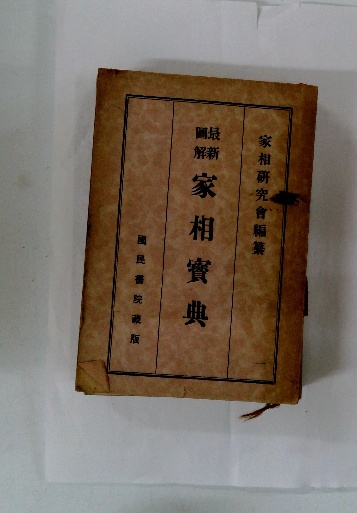 家相研究會編纂
最新圖解
家相寳典
國民書院藏版